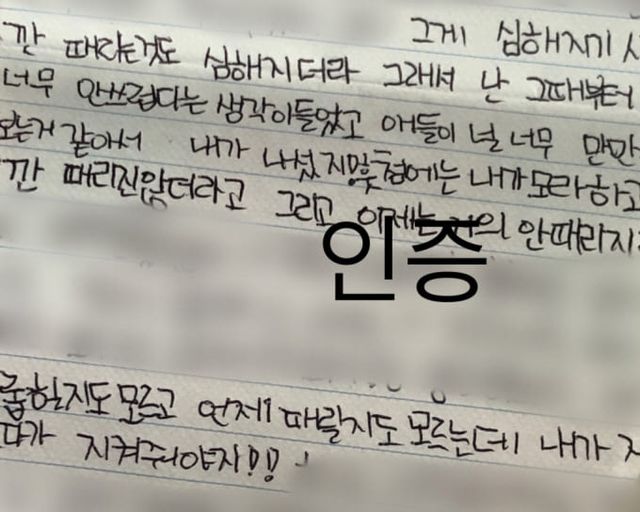 그게 심해지기 시
깐 때리는것도 심해지더라 그래서 난 그때부터
너무 안쓰럽다는 생각이들었고 애들이 널 너무 만만
보는거 같아서 내가 나섰지 맞춤에는 내가 모라하고
깐 때리진않더라고 그리고 이제는 거의 안때리지
인증
훕힐지도 모르고 언제 때릴지도 모르는데 내가 지
다가 지켜줘야지!!